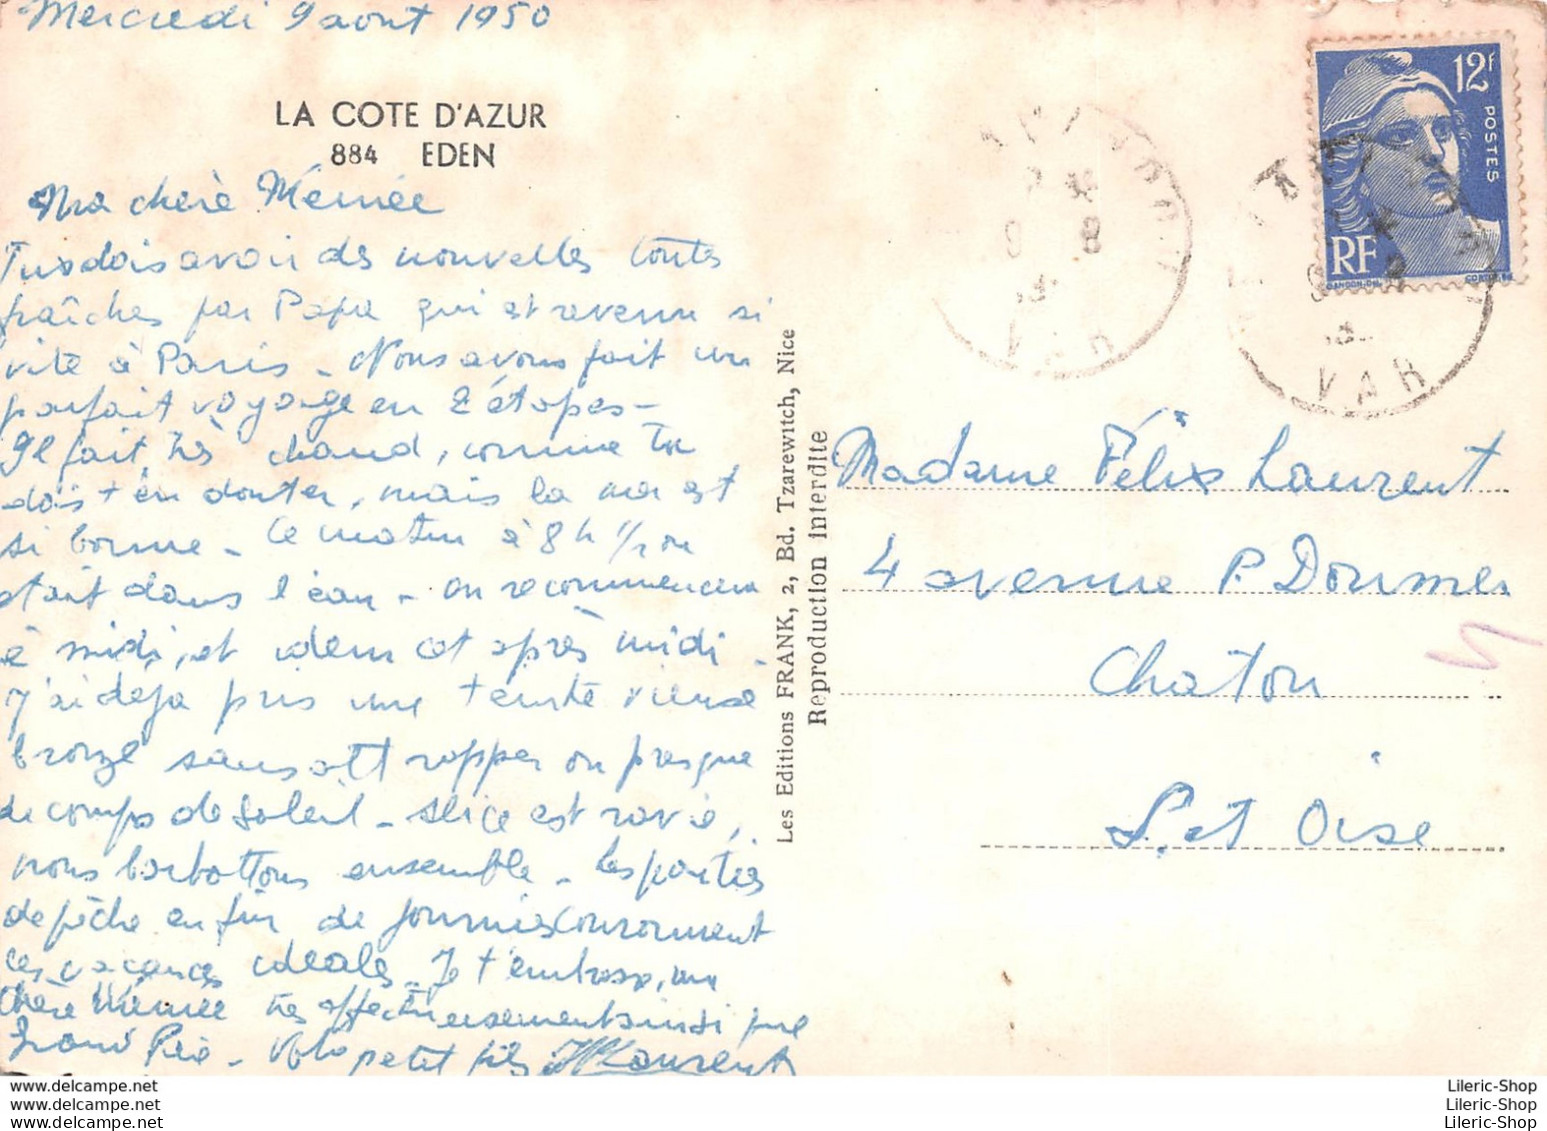 Mercredi 9 aout 1950
LA COTE D'AZUR
884 EDEN
Ma chère Mémée
Tu dois avoir des nouvelles toutes
fraîches par Papa qui est revenu si
vite à Paris - Nous avons fait un
parfait voyage en 2 étapes -
Il fait très chaud, comme tu
dois t'en douter, mais la mer est
si bonne - Ce matin à 8 h 1/2 on
était dans l'eau - on recommencera
à midi, et idem cet après midi.
J'ai déja pris une teinte vieux
bronze sans attrapper ou presque
de coups de soleil - Alice est ravie,
nous barbottons ensemble - Les parties
de pêche en fin de journées couronnent
ces vacances idéales. Je t'embrasse, ma
chère Mémée très affectueusement ainsi que
Grand Père - Vot petit fils Laurent
Les Editions FRANK, 2, Bd. Tzarewitch, Nice
Reproduction interdite
12F
POSTES
RF
GANDON
VAR
VAR
Madame Félix Laurent
4 avenue P. Doumer
Chatou
S. et Oise
Lileric-Shop
Lileric-Shop
Lileric-Shop
Lileric-Shop
Lileric-Shop
Lileric-Shop